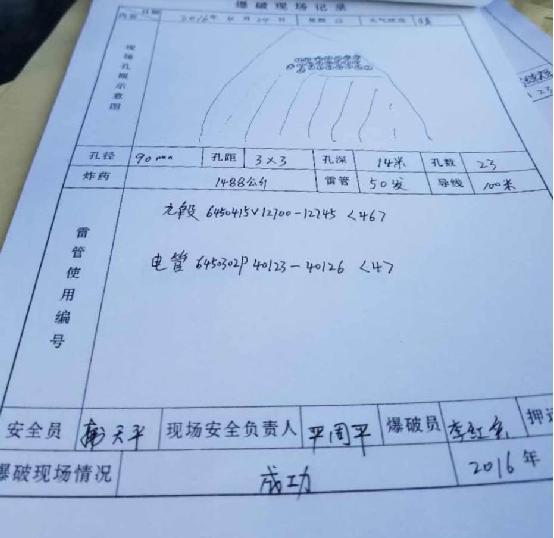 爆破现场记录
日期 内容 2016年4月24日 星期日 天气状况 晴
现场孔眼示意图
孔径 90mm 孔距 3×3 孔深 14米 孔数 23
炸药 1488公斤 雷管 50发 导线 100米
雷管使用编号
6450415V12700-12745 <46>
电管 6450302P 40123-40126 <4>
安全员 天平 现场安全负责人 平周平 爆破员 李红 押运
爆破现场情况 成功 2016年